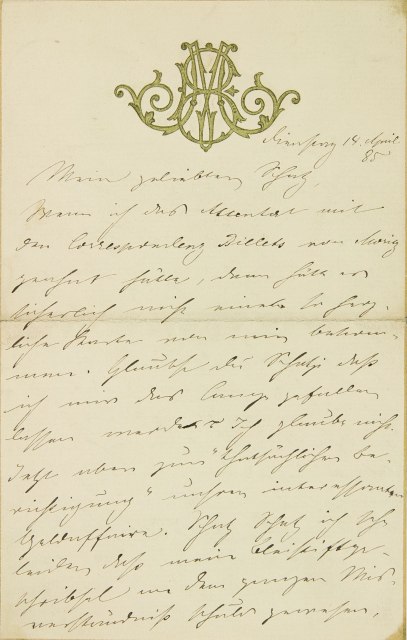 Dienstag 14. April
85
Mein geliebter Schatz,
Wenn ich das Attentat mit
den Correspondenz Billets von Moritz
geahnt hätte, dann hätte er
sicherlich nicht eine so herz-
liche Karte von mir bekom-
men. Glaubst du Schatzi daß
ich mir das lange gefallen
lassen werde? Ich glaube nicht.
Jetzt aber zur "thatsächlichen Be-
richtigung" unsrer interessanten
Geldaffaire. Schatz Schatz ich sehe
leider, daß mein Bleistiftge-
schreibsel an dem ganzen Mis-
verständniß schuld gewesen,